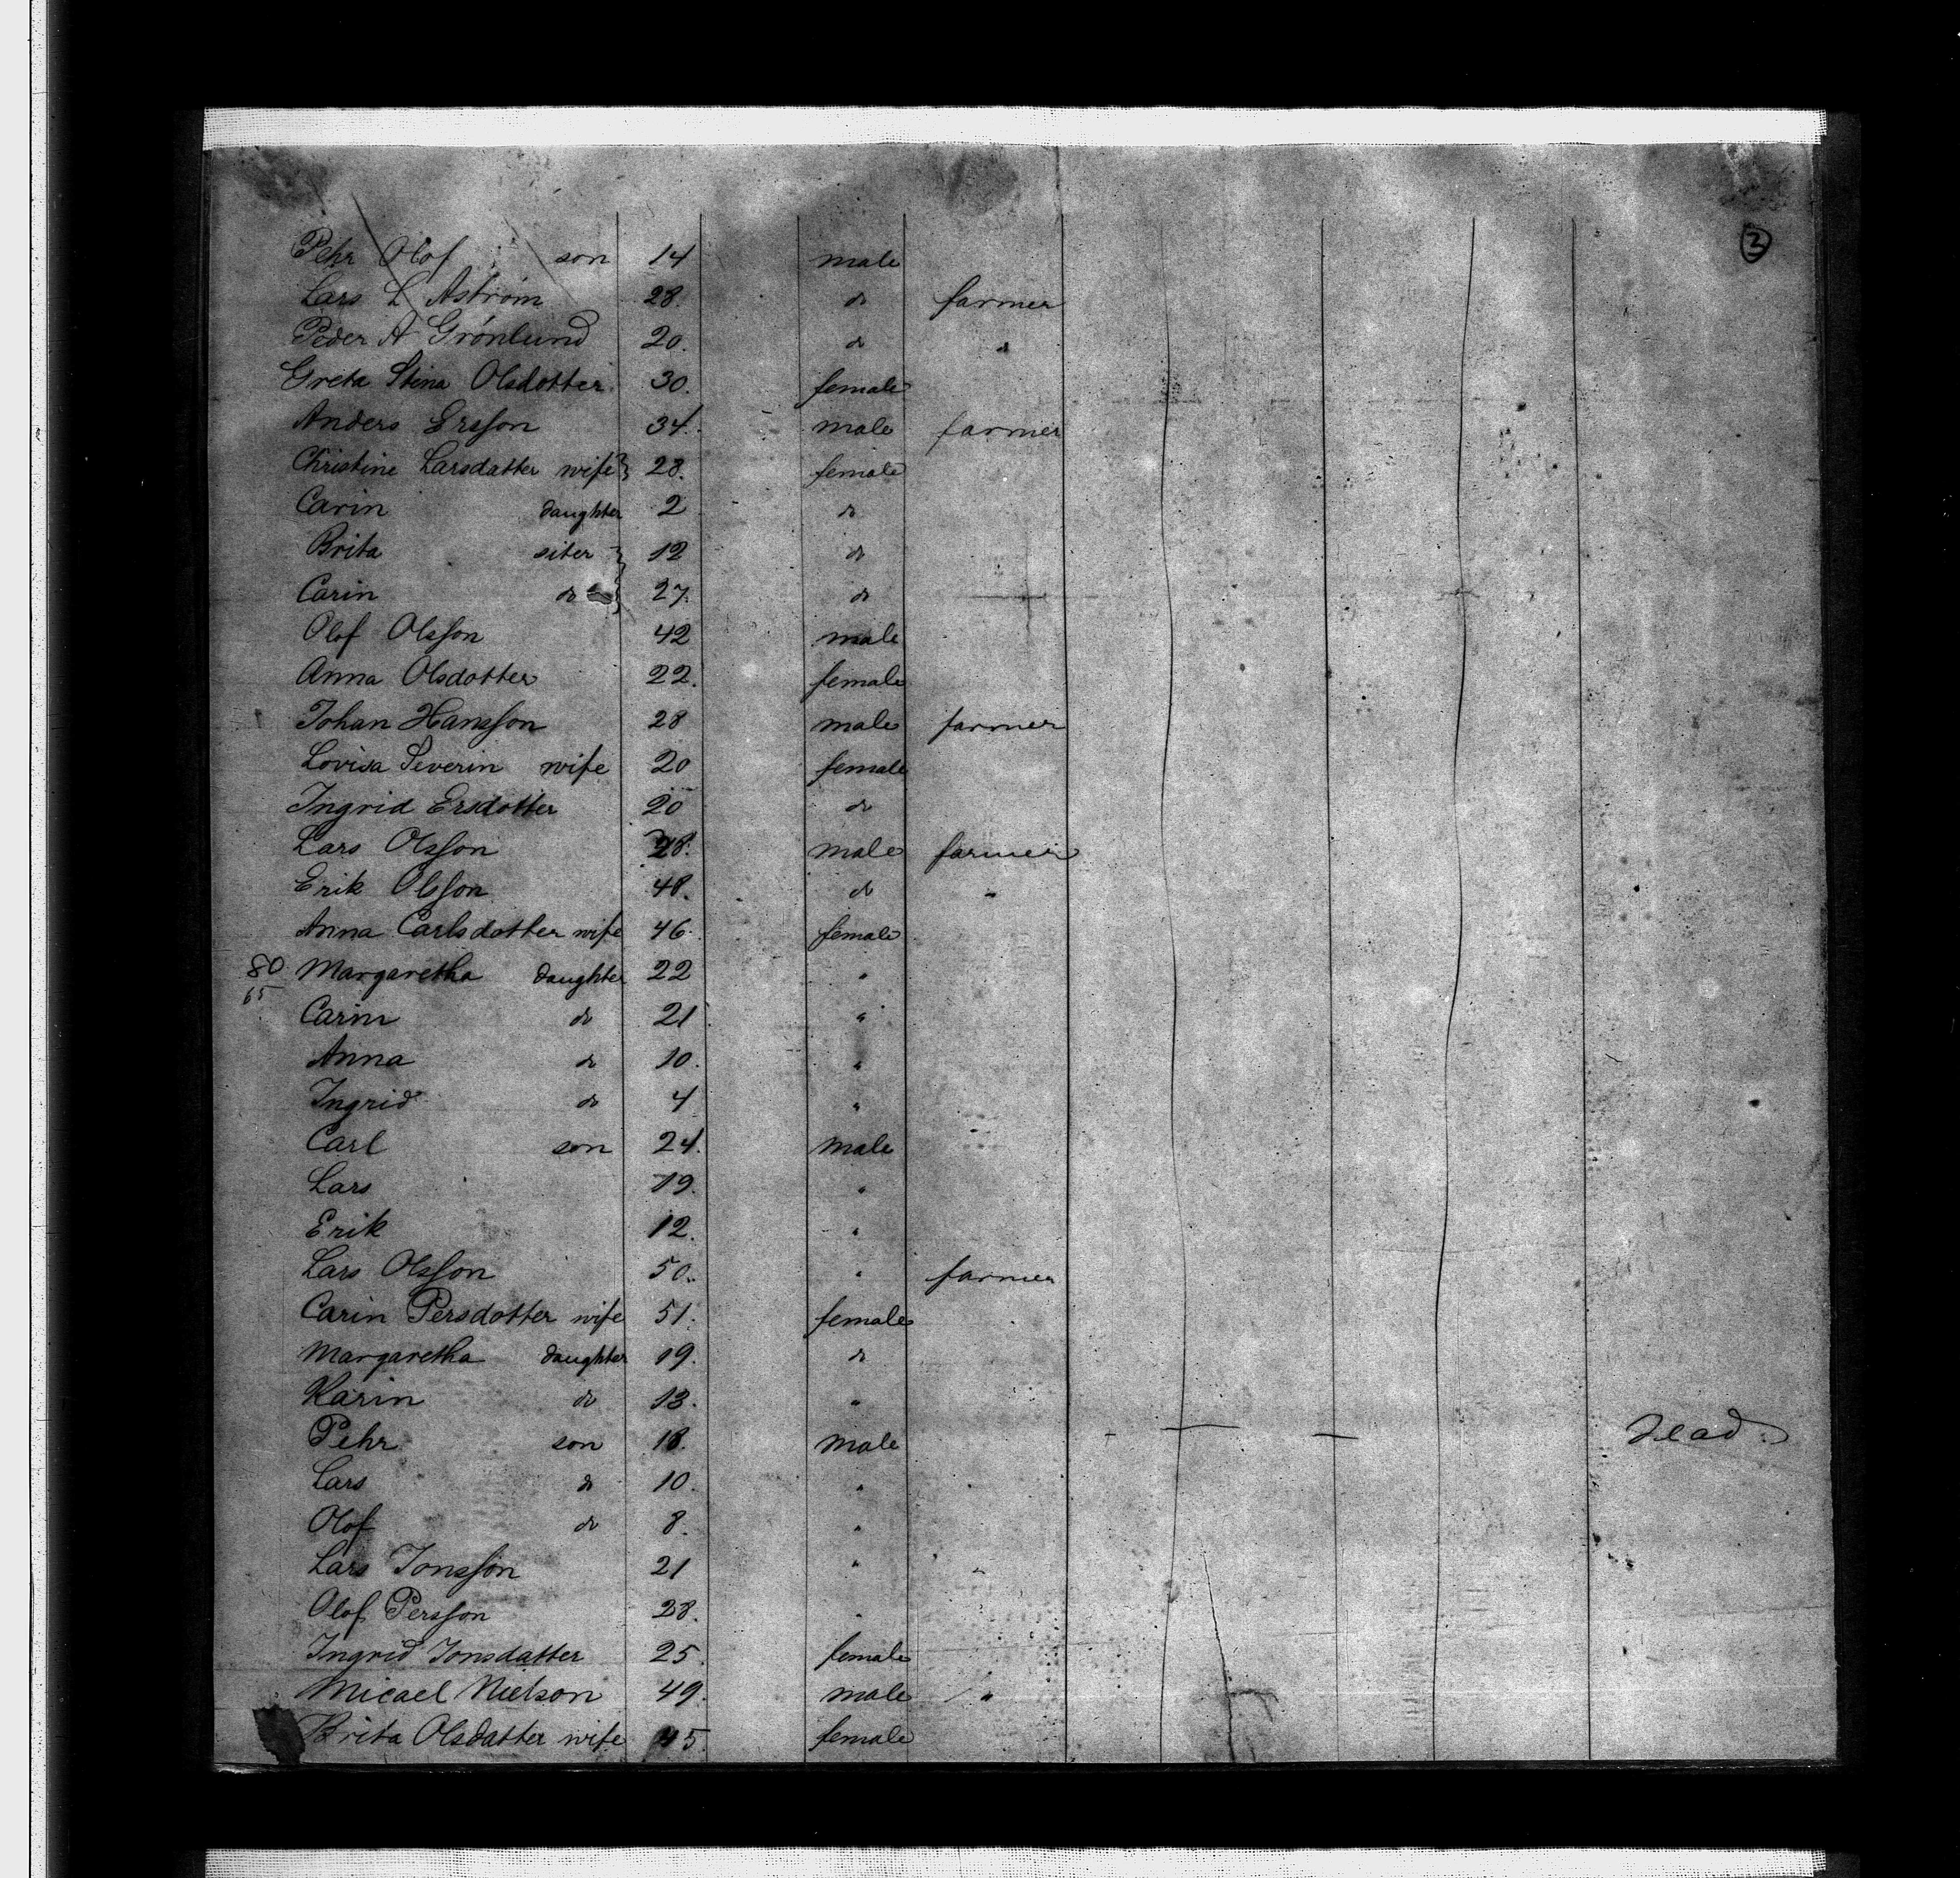 3
Pehr Olof son 14 male
Lars L Aström 28. do farmer
Peder A Grönlund 20. do do
Greta Stina Olsdotter 30. female
Anders Ersson 34. male farmer
Christine Larsdatter wife 28. female
Carin daughter 2 do
Brita siter 12 do
Carin do 27. do
Olof Olsson 42 male
Anna Olsdotter 22. female
Johan Hansson 28 male farmer
Lovisa Severin wife 20 female
Ingrid Ersdotter 20 do
Lars Olsson 28. male farmer
Erik Olsson 48. do "
Anna Carlsdotter wife 46. female
80 Margaretha daughter 22 "
65
Carin do 21 "
Anna do 10. "
Ingrid do 4 "
Carl son 24. male
Lars 19. "
Erik 12. "
Lars Olsson 50. " farmer
Carin Persdotter wife 51. female
Margaretha daughter 19. do
Karin do 13. "
Pehr son 18. male dead.
Lars do 10. "
Olof do 8. "
Lars Jonsson 21 " "
Olof Persson 28. "
Ingrid Jonsdatter 25. female
Micael Nielson 49. male "
Brita Olsdatter wife 45. female